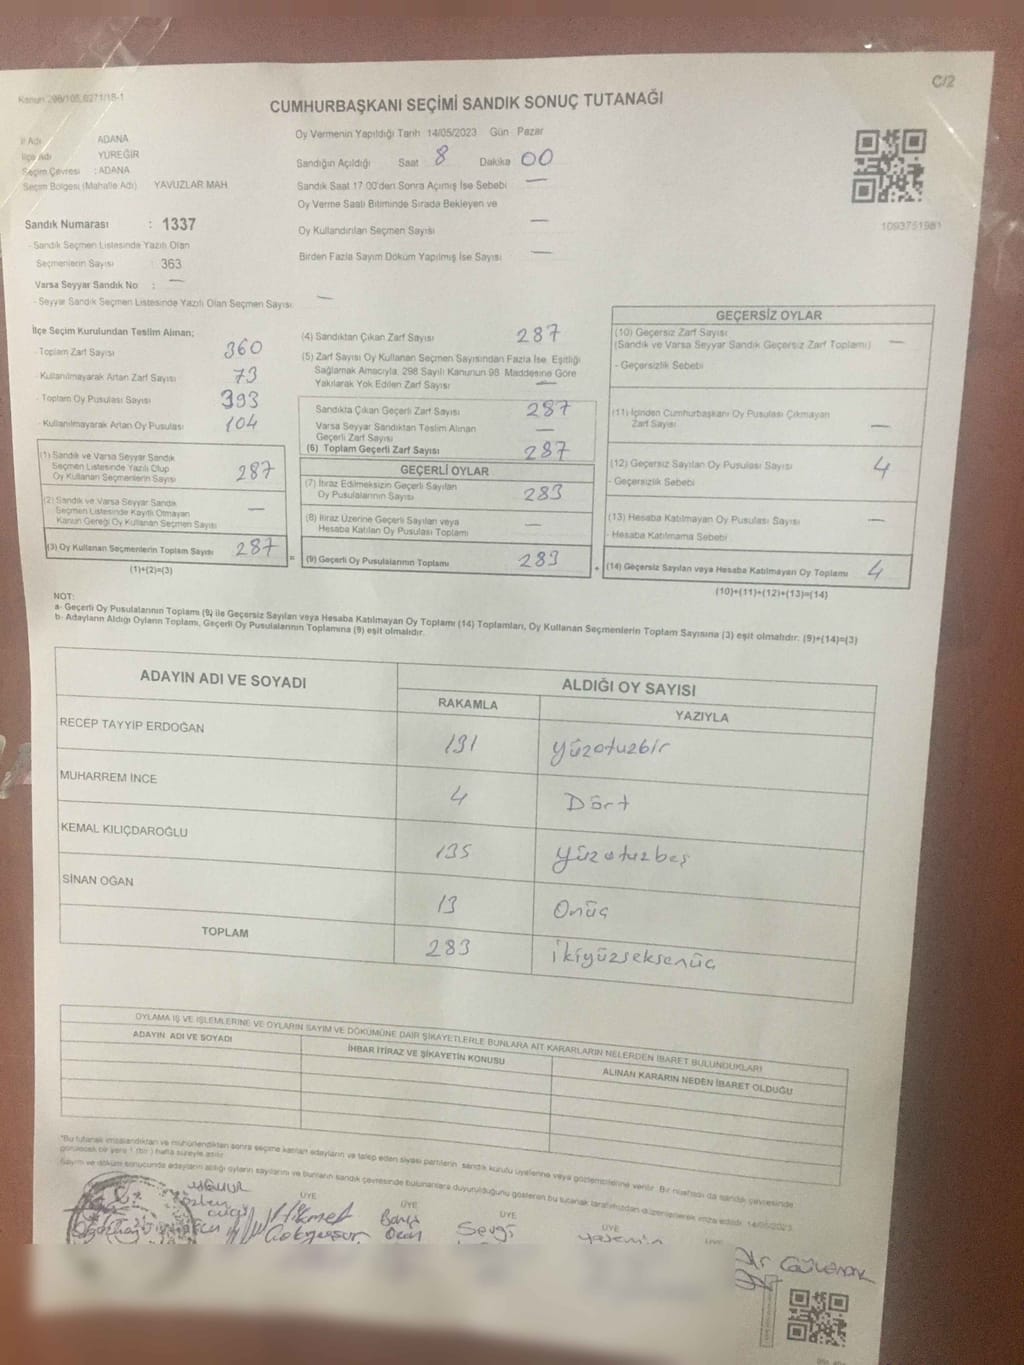 C/2
Kanun 298/105,6271/18-1
CUMHURBAŞKANI SEÇİMİ SANDIK SONUÇ TUTANAĞI
İl Adı ADANA
İlçe Adı YÜREĞİR
Seçim Çevresi : ADANA
Seçim Bölgesi (Mahalle Adı) YAVUZLAR MAH
Sandık Numarası : 1337
- Sandık Seçmen Listesinde Yazılı Olan
Seçmenlerin Sayısı : 363
Varsa Seyyar Sandık No : —
- Seyyar Sandık Seçmen Listesinde Yazılı Olan Seçmen Sayısı: —
Oy Vermenin Yapıldığı Tarih 14/05/2023 Gün Pazar
Sandığın Açıldığı Saat 8 Dakika 00
Sandık Saat 17.00'den Sonra Açımış İse Sebebi —
Oy Verme Saati Bitiminde Sırada Bekleyen ve
Oy Kullandırılan Seçmen Sayısı —
Birden Fazla Sayım Döküm Yapılmış İse Sayısı —
1093751981
İlçe Seçim Kurulundan Teslim Alınan;
- Toplam Zarf Sayısı 360
- Kullanılmayarak Artan Zarf Sayısı 73
- Toplam Oy Pusulası Sayısı 393
- Kullanılmayarak Artan Oy Pusulası 104
(1) Sandık ve Varsa Seyyar Sandık
Seçmen Listesinde Yazılı Olup
Oy Kullanan Seçmenlerin Sayısı 287
(2) Sandık ve Varsa Seyyar Sandık
Seçmen Listesinde Kayıtlı Olmayan
Kanun Gereği Oy Kullanan Seçmen Sayısı —
(3) Oy Kullanan Seçmenlerin Toplam Sayısı 287 =
(1)+(2)=(3)
(4) Sandıktan Çıkan Zarf Sayısı 287
(5) Zarf Sayısı Oy Kullanan Seçmen Sayısından Fazla İse, Eşitliği
Sağlamak Amacıyla, 298 Sayılı Kanunun 98. Maddesine Göre
Yakılarak Yok Edilen Zarf Sayısı —
Sandıkta Çıkan Geçerli Zarf Sayısı 287
Varsa Seyyar Sandıktan Teslim Alınan
Geçerli Zarf Sayısı —
(6) Toplam Geçerli Zarf Sayısı 287
GEÇERLİ OYLAR
(7) İtiraz Edilmeksizin Geçerli Sayılan
Oy Pusulalarının Sayısı 283
(8) İtiraz Üzerine Geçerli Sayılan veya
Hesaba Katılan Oy Pusulası Toplamı —
(9) Geçerli Oy Pusulalarının Toplamı 283 +
GEÇERSİZ OYLAR
(10) Geçersiz Zarf Sayısı
(Sandık ve Varsa Seyyar Sandık Geçersiz Zarf Toplamı) —
- Geçersizlik Sebebi
(11) İçinden Cumhurbaşkanı Oy Pusulası Çıkmayan
Zarf Sayısı —
(12) Geçersiz Sayılan Oy Pusulası Sayısı 4
- Geçersizlik Sebebi
(13) Hesaba Katılmayan Oy Pusulası Sayısı —
- Hesaba Katılmama Sebebi
(14) Geçersiz Sayılan veya Hesaba Katılmayan Oy Toplamı 4
(10)+(11)+(12)+(13)=(14)
NOT:
a- Geçerli Oy Pusulalarının Toplamı (9) ile Geçersiz Sayılan veya Hesaba Katılmayan Oy Toplamı (14) Toplamları, Oy Kullanan Seçmenlerin Toplam Sayısına (3) eşit olmalıdır. (9)+(14)=(3)
b- Adayların Aldığı Oyların Toplamı, Geçerli Oy Pusulalarının Toplamına (9) eşit olmalıdır.
ADAYIN ADI VE SOYADI
ALDIĞI OY SAYISI
RAKAMLA YAZIYLA
RECEP TAYYİP ERDOĞAN 131 yüzotuzbir
MUHARREM İNCE 4 Dört
KEMAL KILIÇDAROĞLU 135 yüzotuzbeş
SİNAN OĞAN 13 Onüç
TOPLAM 283 ikiyüzseksenüç
OYLAMA İŞ VE İŞLEMLERİNE VE OYLARIN SAYIM VE DÖKÜMÜNE DAİR ŞİKAYETLERLE BUNLARA AİT KARARLARIN NELERDEN İBARET BULUNDUKLARI
ADAYIN ADI VE SOYADI İHBAR İTİRAZ VE ŞİKAYETİN KONUSU ALINAN KARARIN NEDEN İBARET OLDUĞU
*Bu tutanak imzalandıktan ve mühürlendikten sonra seçime katılan adayların ve talep eden siyasi partilerin sandık kurulu üyelerine veya gözlemcilerine verilir. Bir nüshası da sandık çevresinde
görülecek bir yere 1 (bir) hafta süreyle asılır.
Sayım ve döküm sonucunda adayların aldığı oyların sayılarını ve bunların sandık çevresinde bulunanlara duyurulduğunu gösteren bu tutanak tarafımızdan düzenlenerek imza edildi. 14/05/2023
ÜYE ÜYE ÜYE ÜYE ÜYE
Hikmet
Sevgi
Yasemin